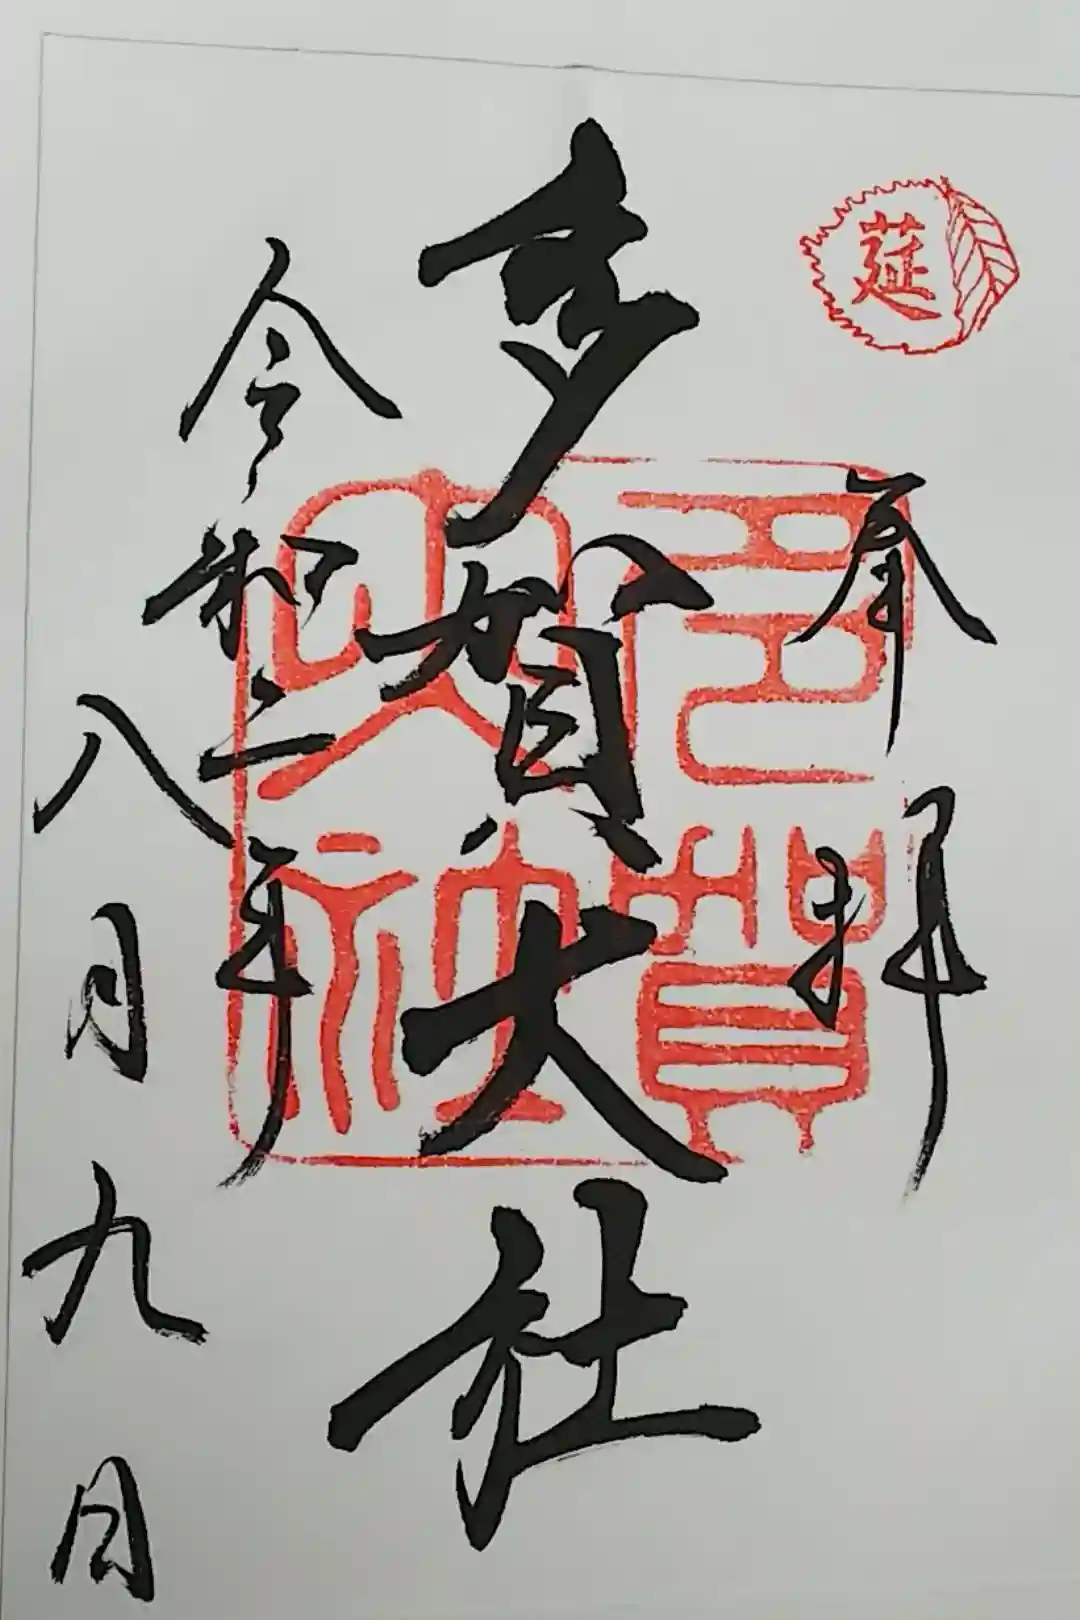 莚
奉拝
多賀大社
多賀大神
令和二年
八月九日